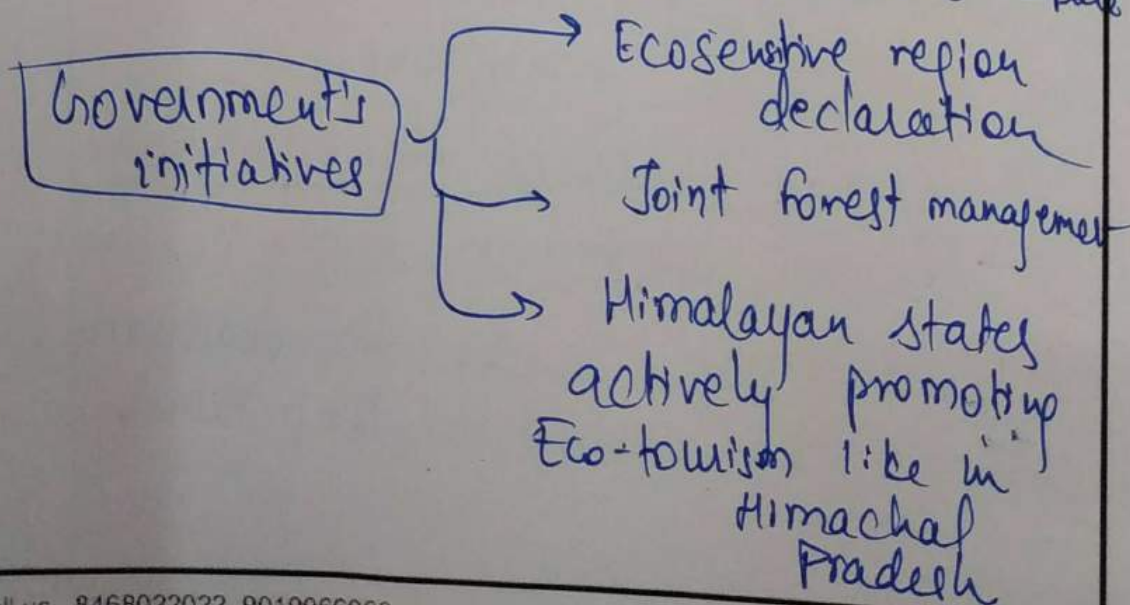 Government's
initiatives
Ecosensitive region
declaration
Joint forest management
Himalayan states
actively promoting
Eco-tourism like in
Himachal
Pradesh
8468022022